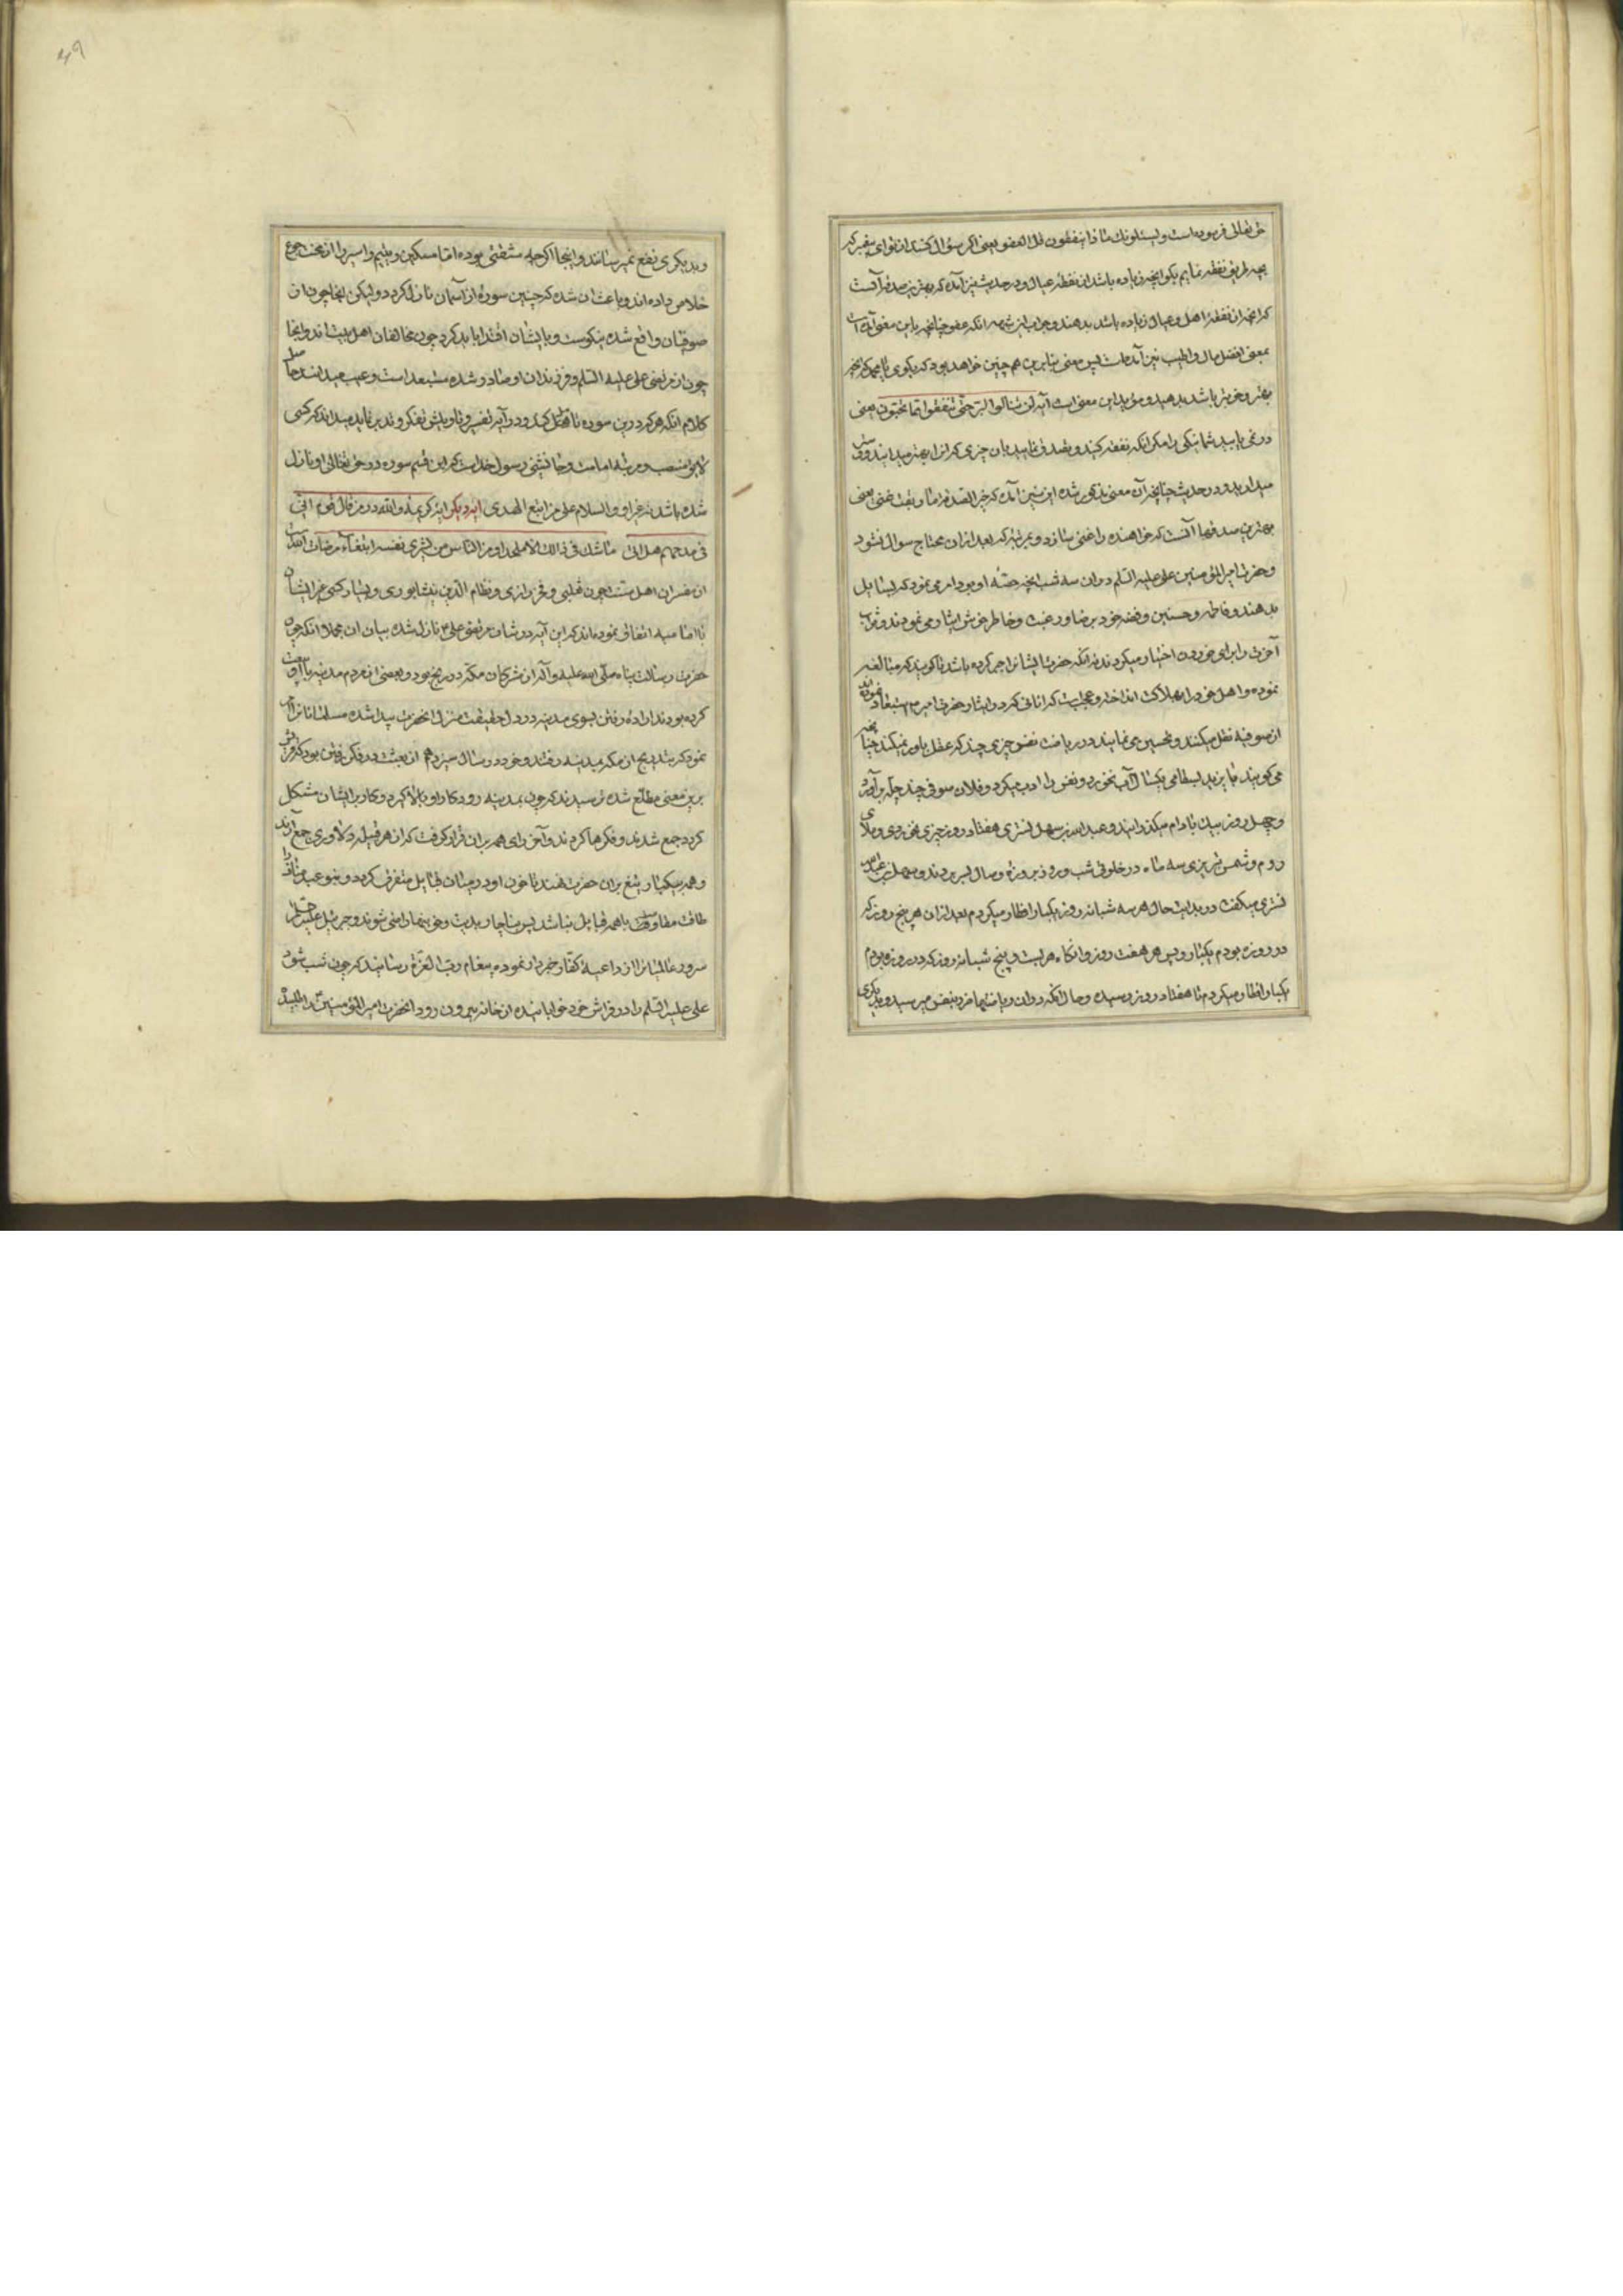 حق تعالی فرموده است ویسئلونک ماذا ینفقون قل العفو یعنی اگر سؤال کنند از تو ای پیغمبر که
بچه طریق نفقه نمایم بگو انچه زیاده باشد از نفقهٔ عیال و در حدیث نیز آمده که بهترین صدقه آنست
که انچه از نفقهٔ اهل و عیال زیاده باشد بدهند و جواب ازین شبهه انکه عفو چنانچه باین معنی آمده است
بمعنی افضل مال و اطیب نیز آمده است پس معنی بنابرین هم چنین خواهد بود که بگوی یا محمد که انچه
بهتر و عزیزتر باشد بدهید و مؤید این معنی است آیه لن تنالوا البرّ حتّی تنفقوا ممّا تحبّون یعنی
در نمی یابید شما نیکی را مگر انکه نفقه کنید و تصدق نمایید بان چیزی که انرا بهتر میدانید و دوست‌تر
میدارید و در حدیث چنانچه آن معنی مذکور شده این نیز آمده که خیر الصدقة ما ابقت غنی یعنی
بهترین صدقها آنست که خواهنده را غنی سازد و بمرتبهٔ که بعد ازان محتاج سوال نشود
و حضرت امیر المؤمنین علی علیه السّلم دران سه شب انچه حصّهٔ او بود امر می نمود که بسایل
بدهند و فاطمه و حسنین و فضه خود برضا و رغبت و خاطر خوش ایثار می نمودند و ثواب
آخرت را برای خود اختیار میکردند نه انکه حضرت ایشانرا جبر کرده باشد تا گویند که مبالغه
نموده و اهل خود را بهلاکت انداخته و عجبست که انانی که در ایثار حضرت امیر ع استبعاد نموده‌اند
از صوفیه نقل میکنند و تحسین می نمایند در ریاضت نفس چیزی چند که عقل باور نمیکند چنانچه
می گویند بایزید بسطامی یکسال آب نخورد و نفس را ادب میکرد و فلان صوفی چند چله بر آورد
و چهل روز بیک بادام میگذرانید و عبدالله بن سهل تستری هفتاد روز چیزی نمی خوردی و ملای
روم و شمس تبریزی سه ماه در خلوتی شب و روز بروزهٔ وصال بسر بردند و سهل بن عبدالله
تستری میگفت در بدایت حال هر سه شبانه روز یکبار افطار میکردم بعد ازان هر پنج روز که
در روزه بودم یکبار و پس هر هفت روز و انگاه هر بیست و پنج شبانه روز که در روزه بودم
یکبار افطار میکردم تا هفتاد روز رسیده و حال انکه دران ریاضتها ضرر بنفس میرسید و بدیگری
و بدیگری نفع نمیرسانند و اینجا اگرچه مشقتی بوده اما مسکین و یتیم و اسیر را از محنت جوع
خلاص داده‌اند و باعث ان شده که چنین سورهٔ از آسمان نازل کردد و لیکن انجا چون از
صوفیان واقع شده نیکوست و بایشان اقتدا باید کرد چون مخالفان اهل بیت اند و اینجا
چون از مرتضی علی علیه السّلم و فرزندان او صادر شده مستبعد است و عیب میدانند حاصل
کلام انکه هر که درین سوره تأمّل کند و در آیه تفسیر و تاویلش تفکر و تدبر نماید میداند که کسی
لایق منصب و مرتبه امامت و جانشینی رسول خداست که این قسم سوره در حق تعالی او نازل
شده باشد نه غیر او و السلام علی من اتبع الهدی ایه دیگر ایهٔ کریمه و لله در من قال قوم اتی
فی مدحهم هل اتی ما شک فی ذالک الا ملحد او من الناس من یشری نفسه ابتغاء مرضات الله
از مفسران اهل سنت چون ثعلبی و فخر رازی و نظام الدین نیشابوری و بسیار کسی غیر ایشان
با امامیه اتفاق نموده‌اند که این آیه در شان مرتضی علی ع نازل شده بیان ان مجملا انکه چون
حضرت رسالت پناه صلّی الله علیه و آله از مشرکان مکّه در رنج بود و بعضی از مردم مدینه با او بیعت
کرده بودند ارادهٔ رفتن بسوی مدینه در دل حقیقت منزل انحضرت پیدا شده مسلمانانرا امر
نمود که بتدریج از مکه بمدینه رفتند و خود در سال سیزدهم از بعثت در فکر رفتن بود که قریش
برین معنی مطلع شده ترسیدند که چون بمدینه رود کار او بالا گیرد و کار بر ایشان مشکل
گردد جمع شدند و فکرها کردند و آخر رای همه بران قرار گرفت که از هر قبیله دلاوری جمع آرند
و همه بیکبار تیغ بران حضرت نهند تا خون او در میان قبایل متفرق گردد و بنو عبد مناف را
طاقت مقاومت با همه قبایل نباشد پس ناچار بدیت و خون بها راضی شوند و جبرئیل علیه السلم
سرور عالمیانرا از داعیهٔ کفّار خبردار نموده پیغام ربّ العزّة رسانید که چون شب شود
علی علیه السّلم را در فراش خود خوابانیده از خانه بیرون رود انحضرت امیر المؤمنین را طلبید